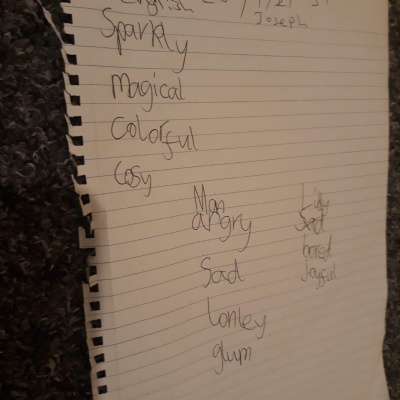 English
Joseph
Sparkly
Magical
Colorful
Cosy
Man
angry
Sad
lonley
glum
Lily
Sad
bored
Joyful